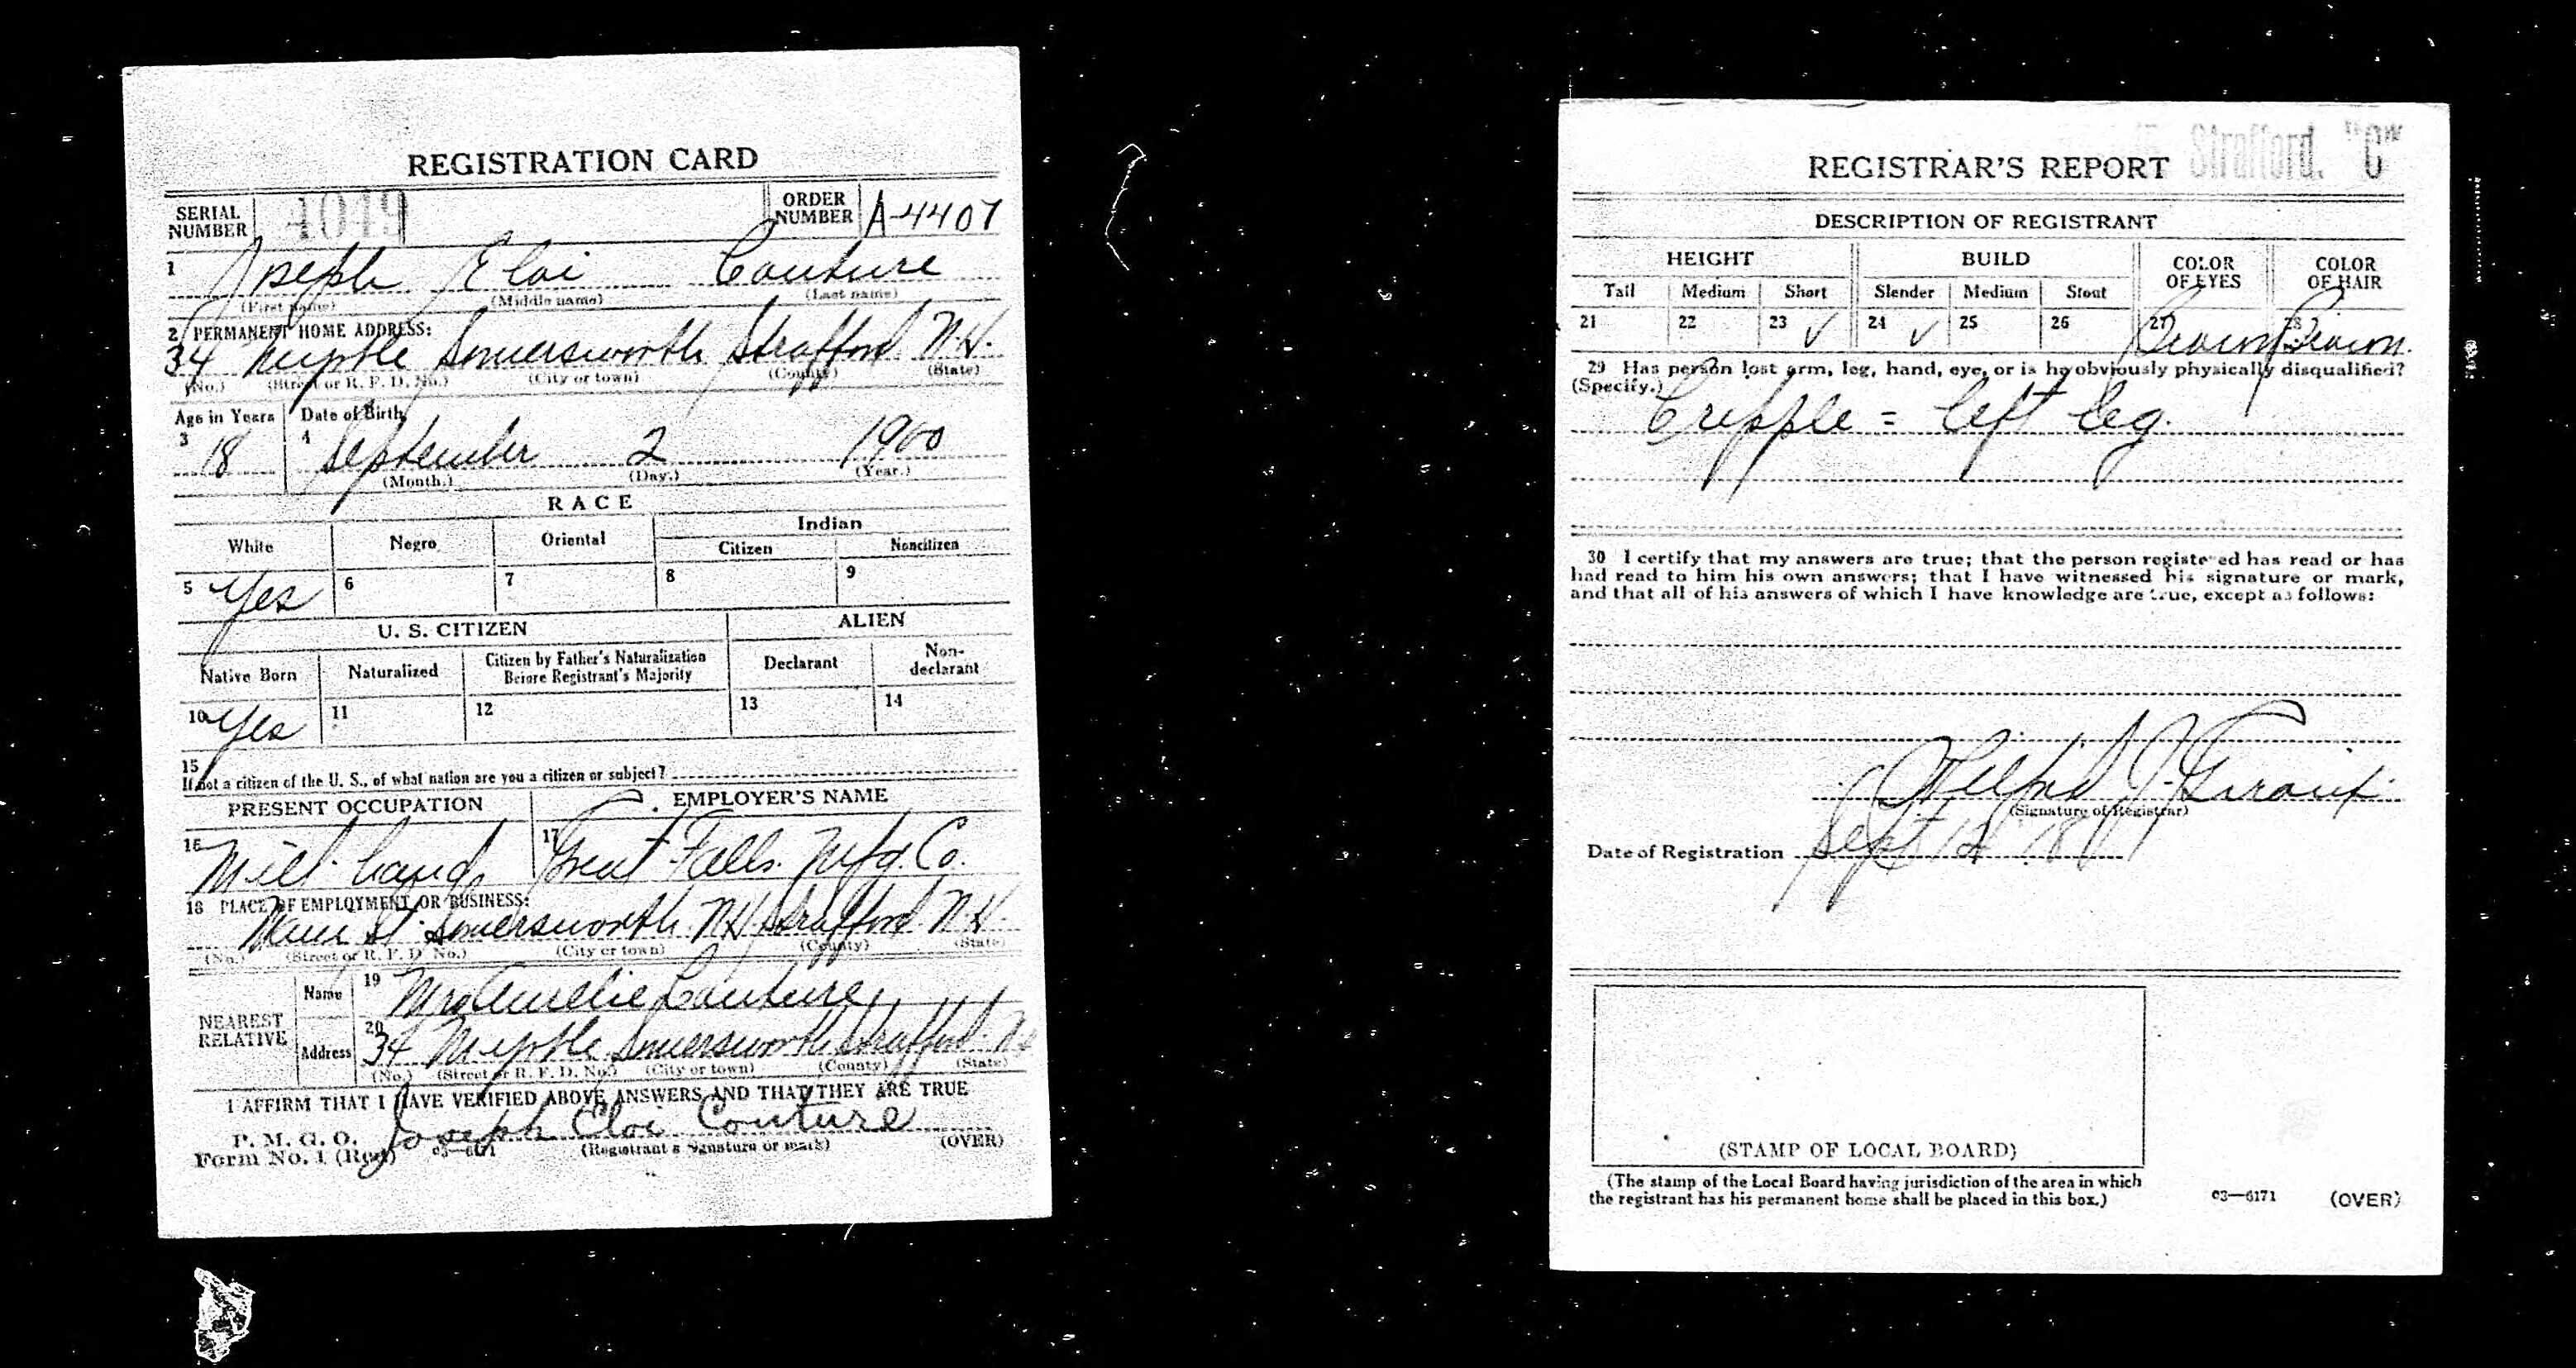 REGISTRATION CARD
SERIAL NUMBER 4049 ORDER NUMBER A-4407
1 Joseph Eloi Couture
(First name) (Middle name) (Last name)
2 PERMANENT HOME ADDRESS:
34 Myrtle Somersworth Strafford N.H.
(No.) (Street or R. F. D. No.) (City or town) (County) (State)
Age in Years Date of Birth
3 18 4 September 2 1900
(Month.) (Day.) (Year.)
RACE
White Negro Oriental Indian
Citizen Noncitizen
5 Yes 6 7 8 9
U. S. CITIZEN ALIEN
Native Born Naturalized Citizen by Father's Naturalization Before Registrant's Majority Declarant Non-declarant
10 Yes 11 12 13 14
15
If not a citizen of the U. S., of what nation are you a citizen or subject?
PRESENT OCCUPATION EMPLOYER'S NAME
16 Mill hand 17 Great Falls Mfg. Co.
18 PLACE OF EMPLOYMENT OR BUSINESS:
Main St. Somersworth N.H. Strafford N.H.
(No.) (Street or R. F. D. No.) (City or town) (County) (State)
NEAREST RELATIVE
Name 19 Mrs Aurelie Couture
Address 20 34 Myrtle Somersworth Strafford N.H.
(No.) (Street or R. F. D. No.) (City or town) (County) (State)
I AFFIRM THAT I HAVE VERIFIED ABOVE ANSWERS AND THAT THEY ARE TRUE
P. M. G. O.
Form No. 1 (Red) 03—6171 Joseph Eloi Couture
(Registrant's signature or mark) (OVER)
Strafford. "C"
REGISTRAR'S REPORT
DESCRIPTION OF REGISTRANT
HEIGHT BUILD COLOR OF EYES COLOR OF HAIR
Tall Medium Short Slender Medium Stout
21 22 23 ✓ 24 ✓ 25 26 27 Brown 28 Brown
29 Has person lost arm, leg, hand, eye, or is he obviously physically disqualified?
(Specify.)
Cripple = left leg.
30 I certify that my answers are true; that the person registered has read or has
had read to him his own answers; that I have witnessed his signature or mark,
and that all of his answers of which I have knowledge are true, except as follows:
(Signature of Registrar)
Date of Registration Sept 12 1918
(STAMP OF LOCAL BOARD)
(The stamp of the Local Board having jurisdiction of the area in which
the registrant has his permanent home shall be placed in this box.)
03—6171 (OVER)